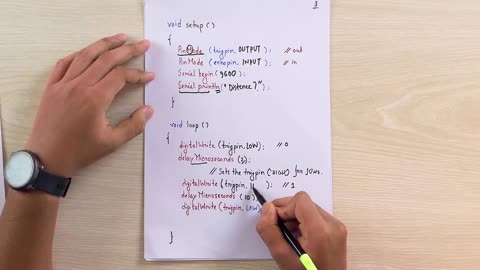 3
void setup ()
{
PinMode (trigpin, OUTPUT); // out
PinMode (echopin, INPUT); // in
Serial begin (9600);
Serial println ("Distance:");
}
void loop ()
{
digitalWrite (trigpin, LOW); // 0
delay Microseconds (2);
// Sets the trigpin (HIGH) for 10us.
digitalWrite (trigpin, ); // 1
delay Microseconds (10)
digitalWrite (trigpin, LOW)
}